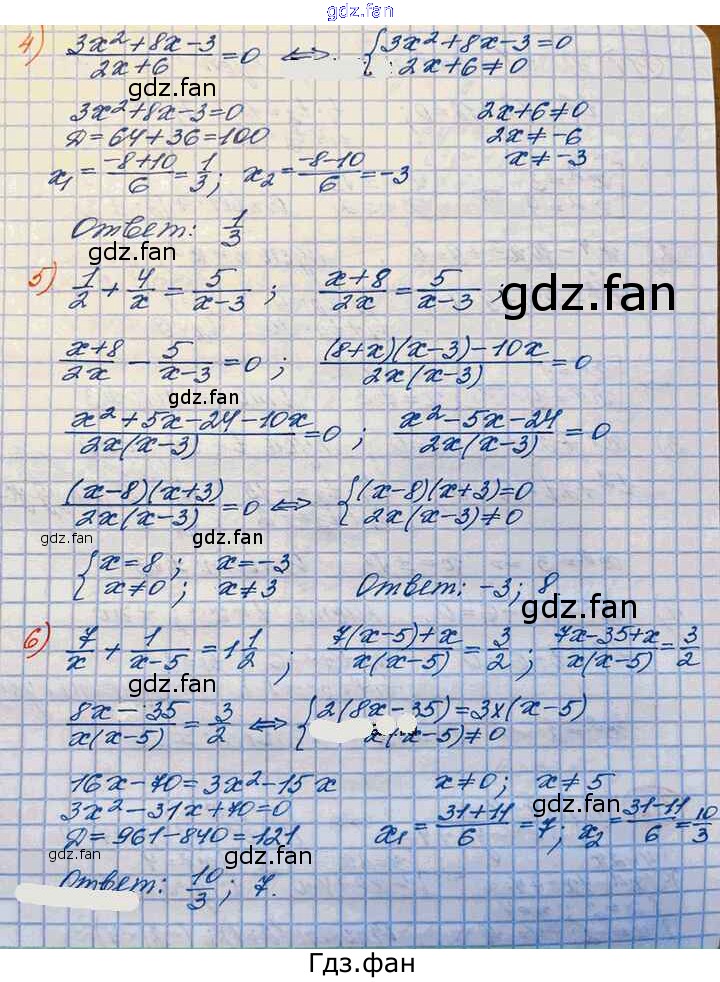 gdz.fan
4) (3x²+8x-3)/(2x+6) = 0 ⇔ { 3x²+8x-3=0
2x+6≠0
gdz.fan
3x²+8x-3=0 2x+6≠0
Д=64+36=100 2x≠-6
x₁ = (-8+10)/6 = 1/3; x₂ = (-8-10)/6 = -3 x≠-3
gdz.fan
Ответ: 1/3
gdz.fan
5) 1/2 + 4/x = 5/(x-3) ; (x+8)/2x = 5/(x-3) ;
gdz.fan
(x+8)/2x - 5/(x-3) = 0 ; ((8+x)(x-3)-10x)/(2x(x-3)) = 0
gdz.fan
(x²+5x-24-10x)/(2x(x-3)) = 0 ; (x²-5x-24)/(2x(x-3)) = 0
gdz.fan
((x-8)(x+3))/(2x(x-3)) = 0 ⇔ { (x-8)(x+3)=0
2x(x-3)≠0
gdz.fan gdz.fan
{ x=8 ; x=-3
x≠0 ; x≠3 Ответ: -3; 8
gdz.fan
6) 7/x + 1/(x-5) = 1 1/2 ; (7(x-5)+x)/(x(x-5)) = 3/2 ; (7x-35+x)/(x(x-5)) = 3/2
gdz.fan
(8x-35)/(x(x-5)) = 3/2 ⇔ { 2(8x-35)=3x(x-5)
x(x-5)≠0
gdz.fan
16x-70=3x²-15x x≠0; x≠5
3x²-31x+70=0
Д=961-840=121 x₁ = (31+11)/6 = 7; x₂ = (31-11)/6 = 10/3
gdz.fan gdz.fan gdz.fan
Ответ: 10/3 ; 7.
gdz.fan
Гдз.фан